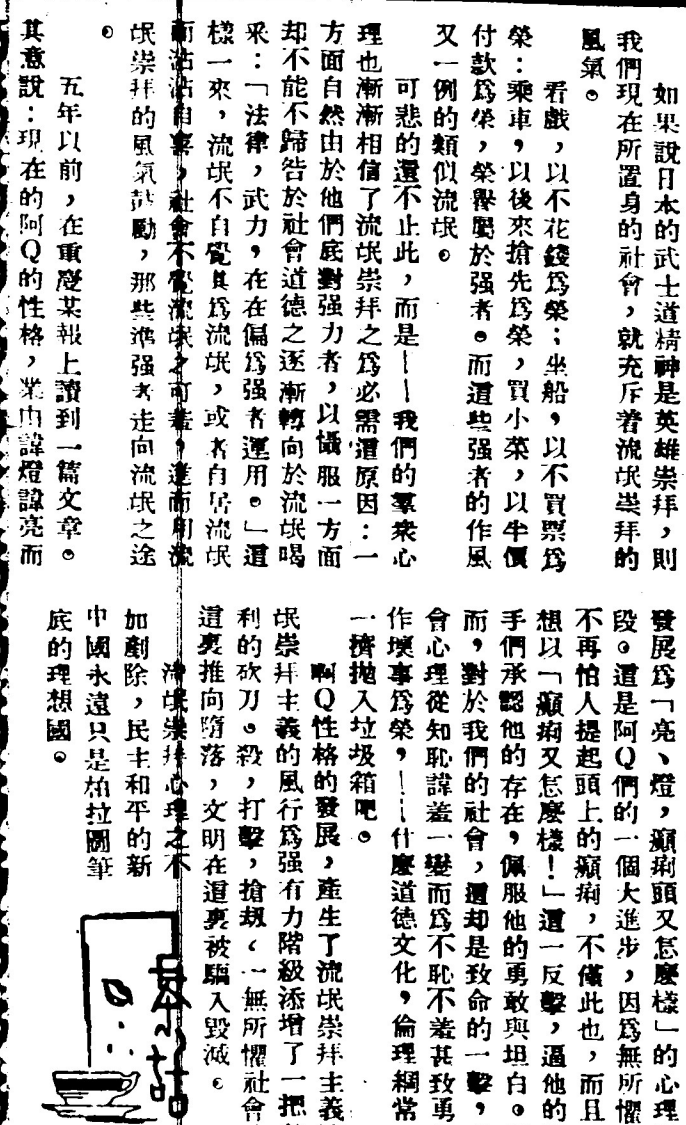 如果說日本的武士道精神是英雄崇拜，則
我們現在所置身的社會，就充斥着流氓崇拜的
風氣。
看戲，以不花錢爲榮；坐船，以不買票爲
榮：乘車，以後來搶先爲榮，買小菜，以半價
付款爲榮，榮譽屬於强者。而這些强者的作風
又一例的類似流氓。
可悲的還不止此，而是——我們的羣衆心
理也漸漸相信了流氓崇拜之爲必需這原因：一
方面自然由於他們底對强力者，以懾服一方面
却不能不歸咎於社會道德之逐漸轉向於流氓喝
采：「法律，武力，在在偏爲强者運用。」這
樣一來，流氓不自覺其爲流氓，或者自居流氓
而沾沾自喜，社會不覺流氓之可羞，進而用流
氓崇拜的風氣鼓勵，那些準强者走向流氓之途
。
五年以前，在重慶某報上讀到一篇文章。
其意說：現在的阿Q的性格，業由諱燈諱亮而
發展爲「亮、燈，癩痢頭又怎麼樣」的心理
段。這是阿Q們的一個大進步，因爲無所懼
不再怕人提起頭上的癩痢，不僅此也，而且
想以「癩痢又怎麼樣！」這一反擊，逼他的
手們承認他的存在，佩服他的勇敢與坦白。
而，對於我們的社會，這却是致命的一擊，
會心理從知恥諱羞一變而爲不恥不羞甚致勇
作壞事爲榮，——什麼道德文化，倫理綱常
一擠拋入垃圾箱吧。
啊Q性格的發展，產生了流氓崇拜主義
氓崇拜主義的風行爲强有力階級添增了一把
利的砍刀。殺，打擊，搶刼，一無所懼社會
這裏推向墮落，文明在這裏被騙入毀滅。
流氓崇拜心理之不
加剷除，民主和平的新
中國永遠只是柏拉圖筆
底的理想國。